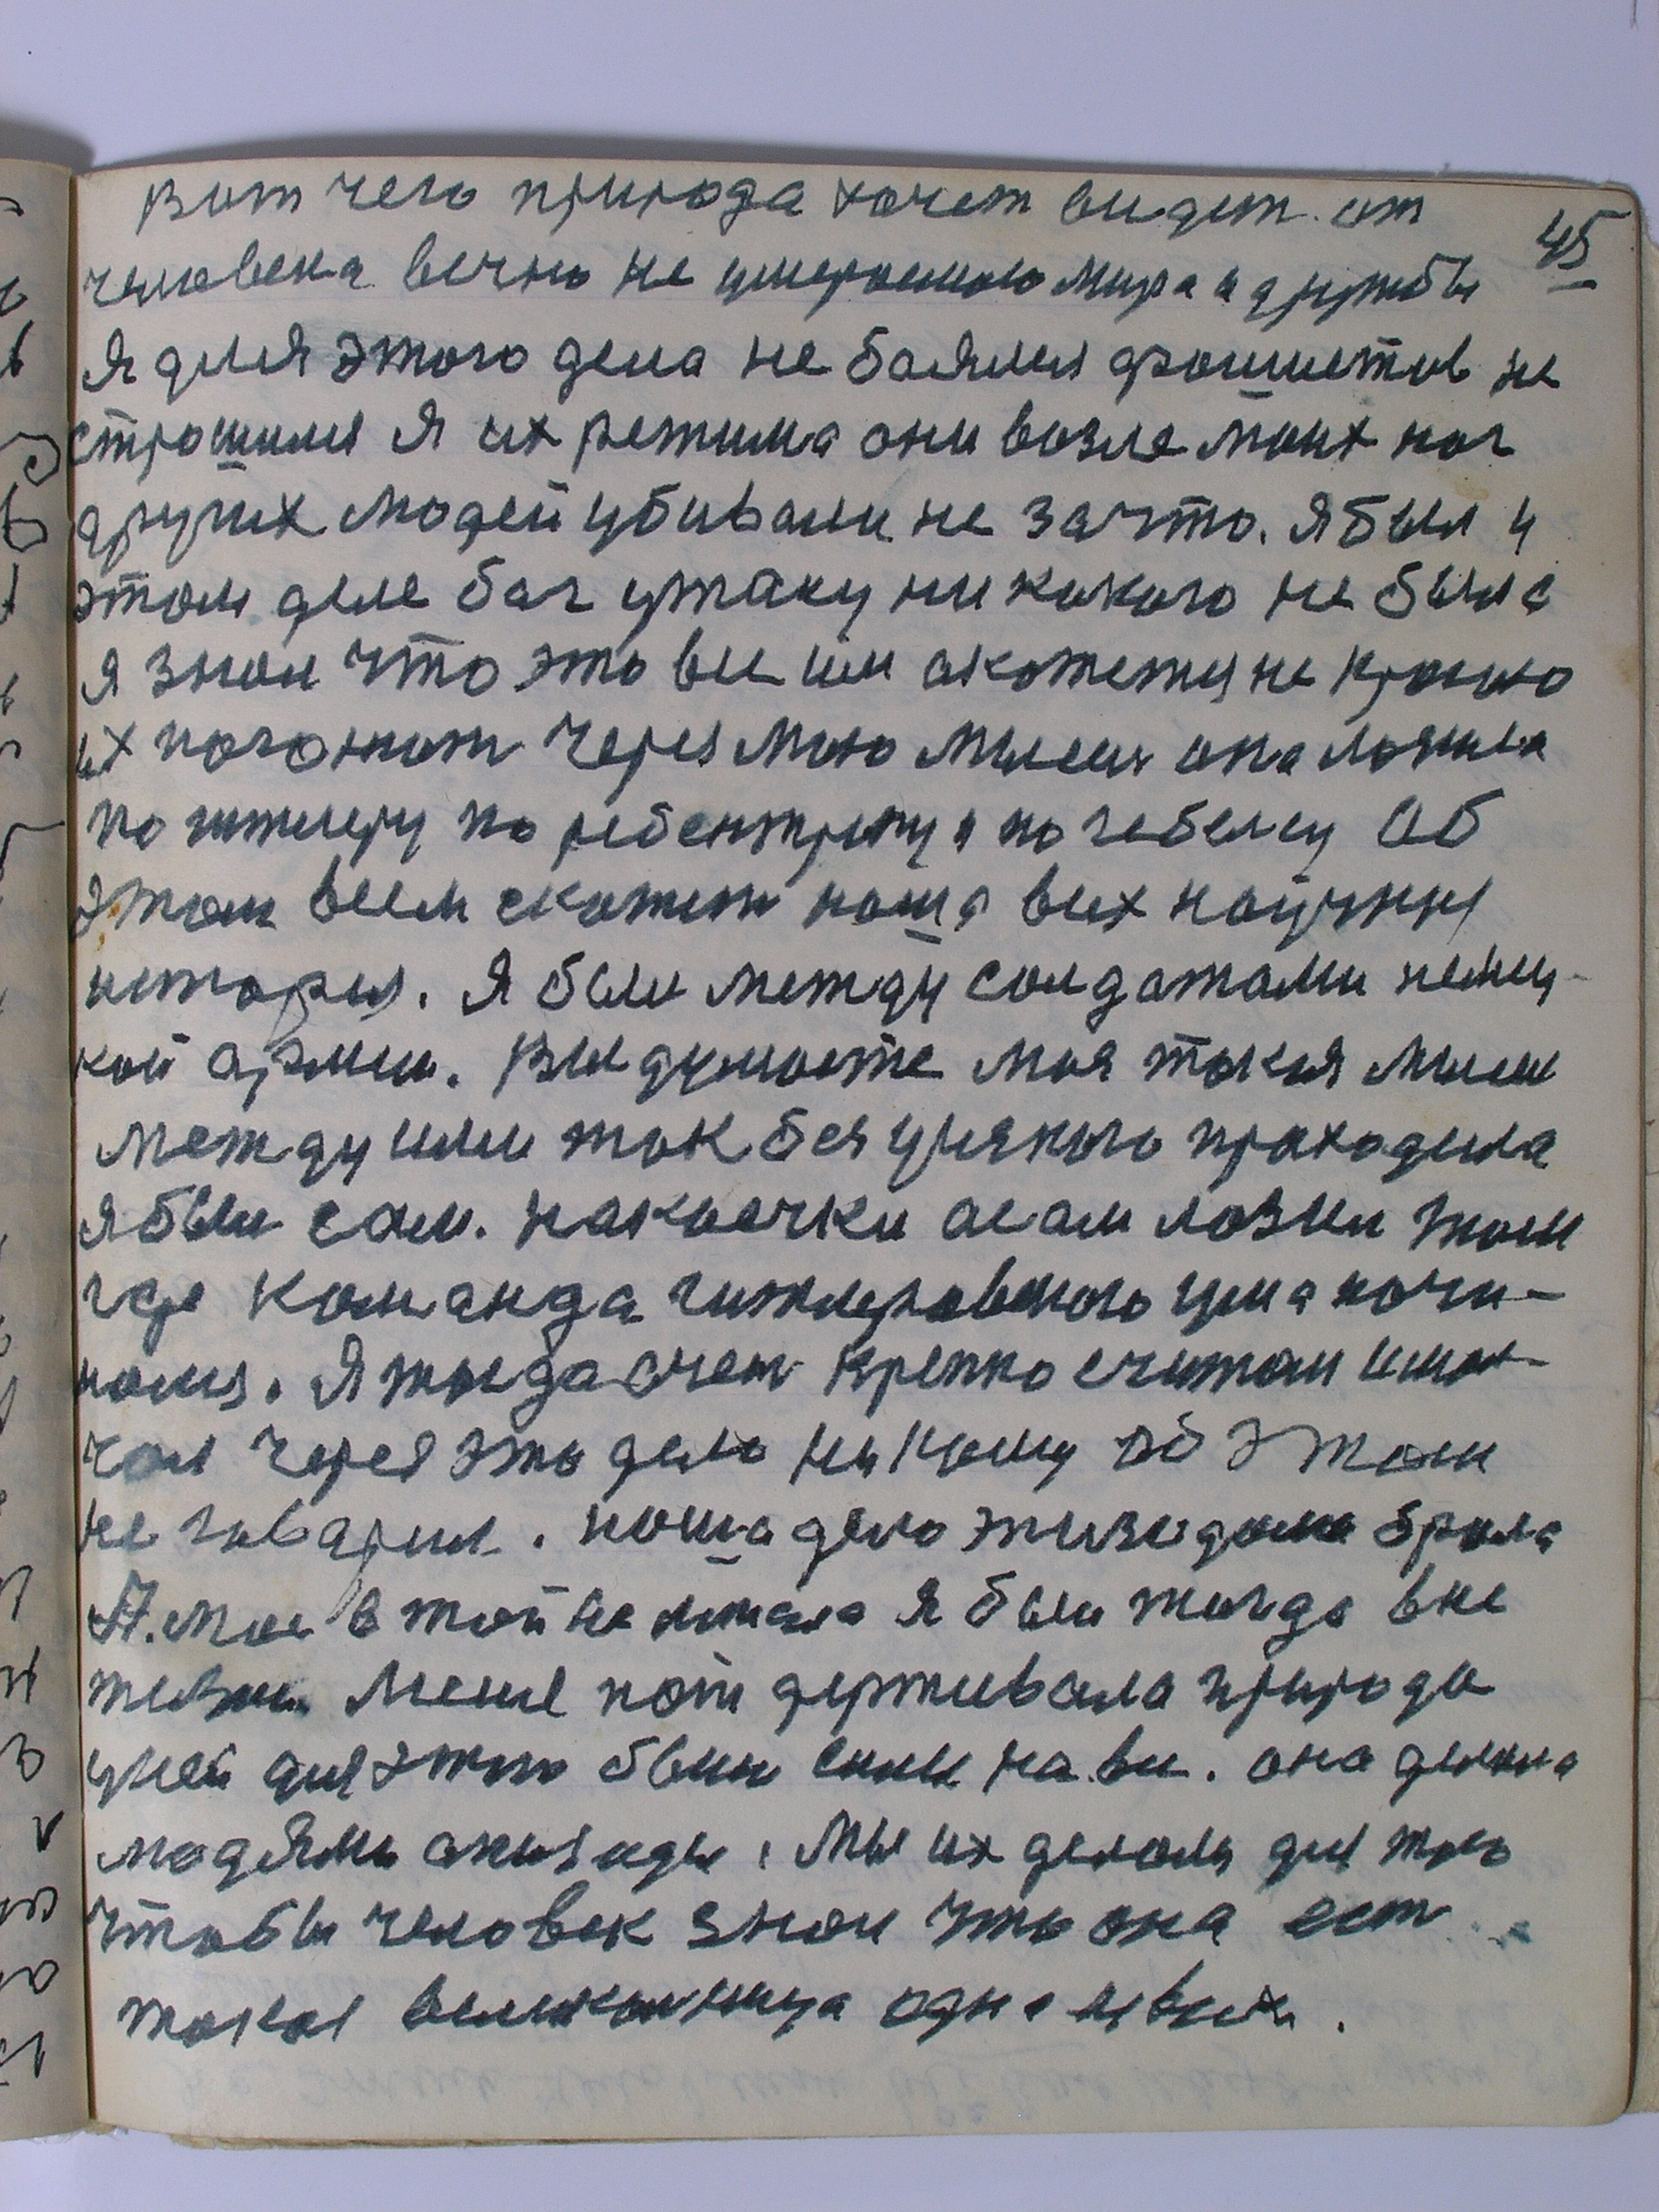 Вот чего природа хочет видет от
45
человека вечно не умераемого мира и дружбы
Я для этого дела не баялся фошистов не
строшился я их режима они возле моих ног
других людей убивали не за что. Я был и
этом деле бог ужаку ни кокого не было
я знол что это все им акожется не провло
их погонют через мою мысль она ложила
по гитлеру по ребентропу и по гебелсу Об
этом всем скожет ноша всих научния
история. Я был между солдатами немец-
кой армии. Вы думаете моя такая мысль
между ими ток без усякого праходила
я был сам. на коечки а сам лозил там
где команда гитлеровского ума кочи-
нолся. Я тогда очен крепко считал и мол-
чал через это дело ни кому об этом
не говарил. ноша дело живо дома брала
А. мое в той не летала я был тогда вне
жизни. Меня пот держивала природа
у ней для этого были силы на все. она делала
людями эпизоды. Мы их делали для того
чтобы человек знол что она ест
такая великонница одна из всих.